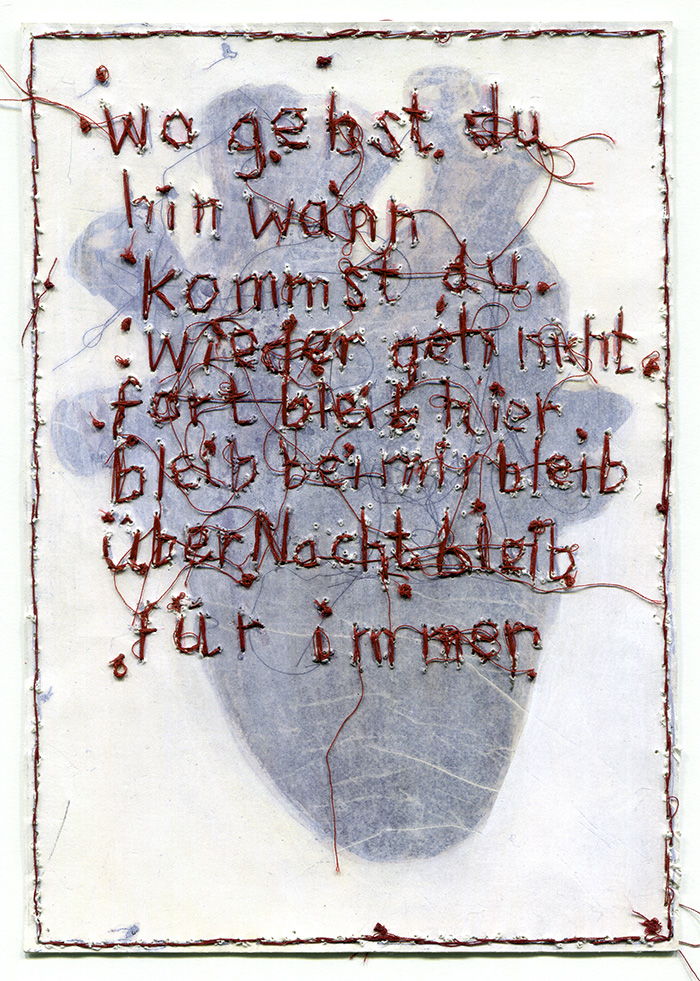 wo gehst du
hin wann
kommst du
wieder geh nicht
fort bleib hier
bleib bei mir bleib
über Nacht bleib
für immer